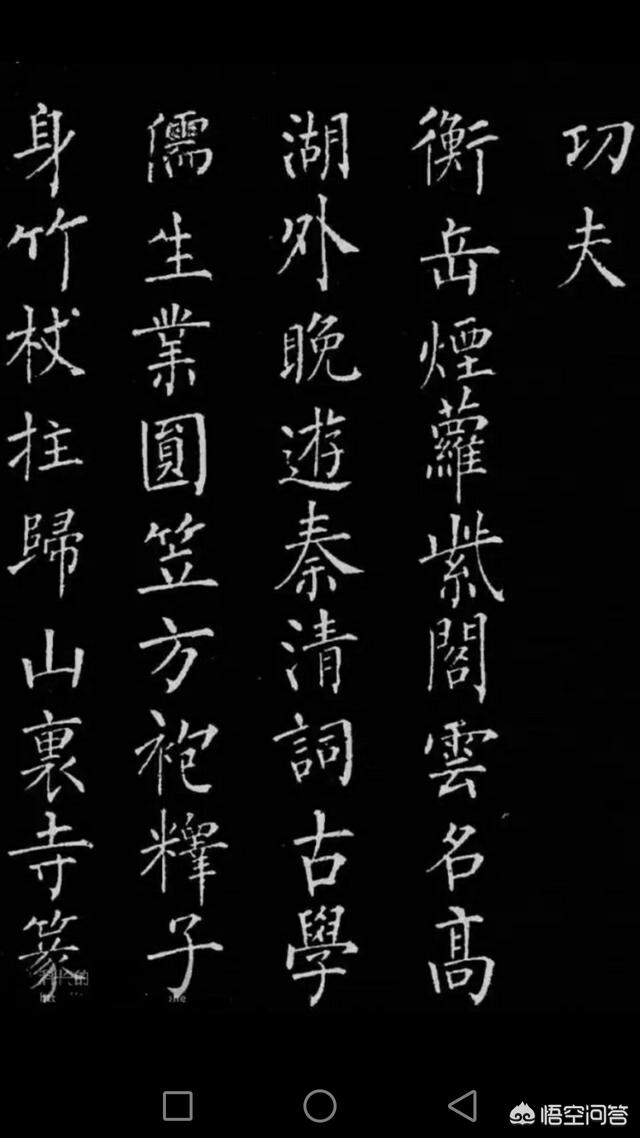 功夫
衡岳煙蘿紫閣雲名高
湖外晚遊秦清詞古學
儒生業圓笠方袍釋子
身竹杖拄歸山裏寺篆
悟空问答